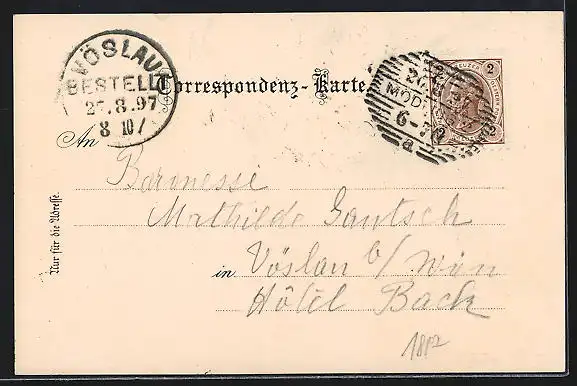 VÖSLAU
BESTELLT
27.8.97
Correspondenz-Karte
2
MÖD
6-7
a
2
An
Baronesse
Mathilde Gautsch
in Vöslau b/ Wien
Hôtel Back
Nur für die Adresse.